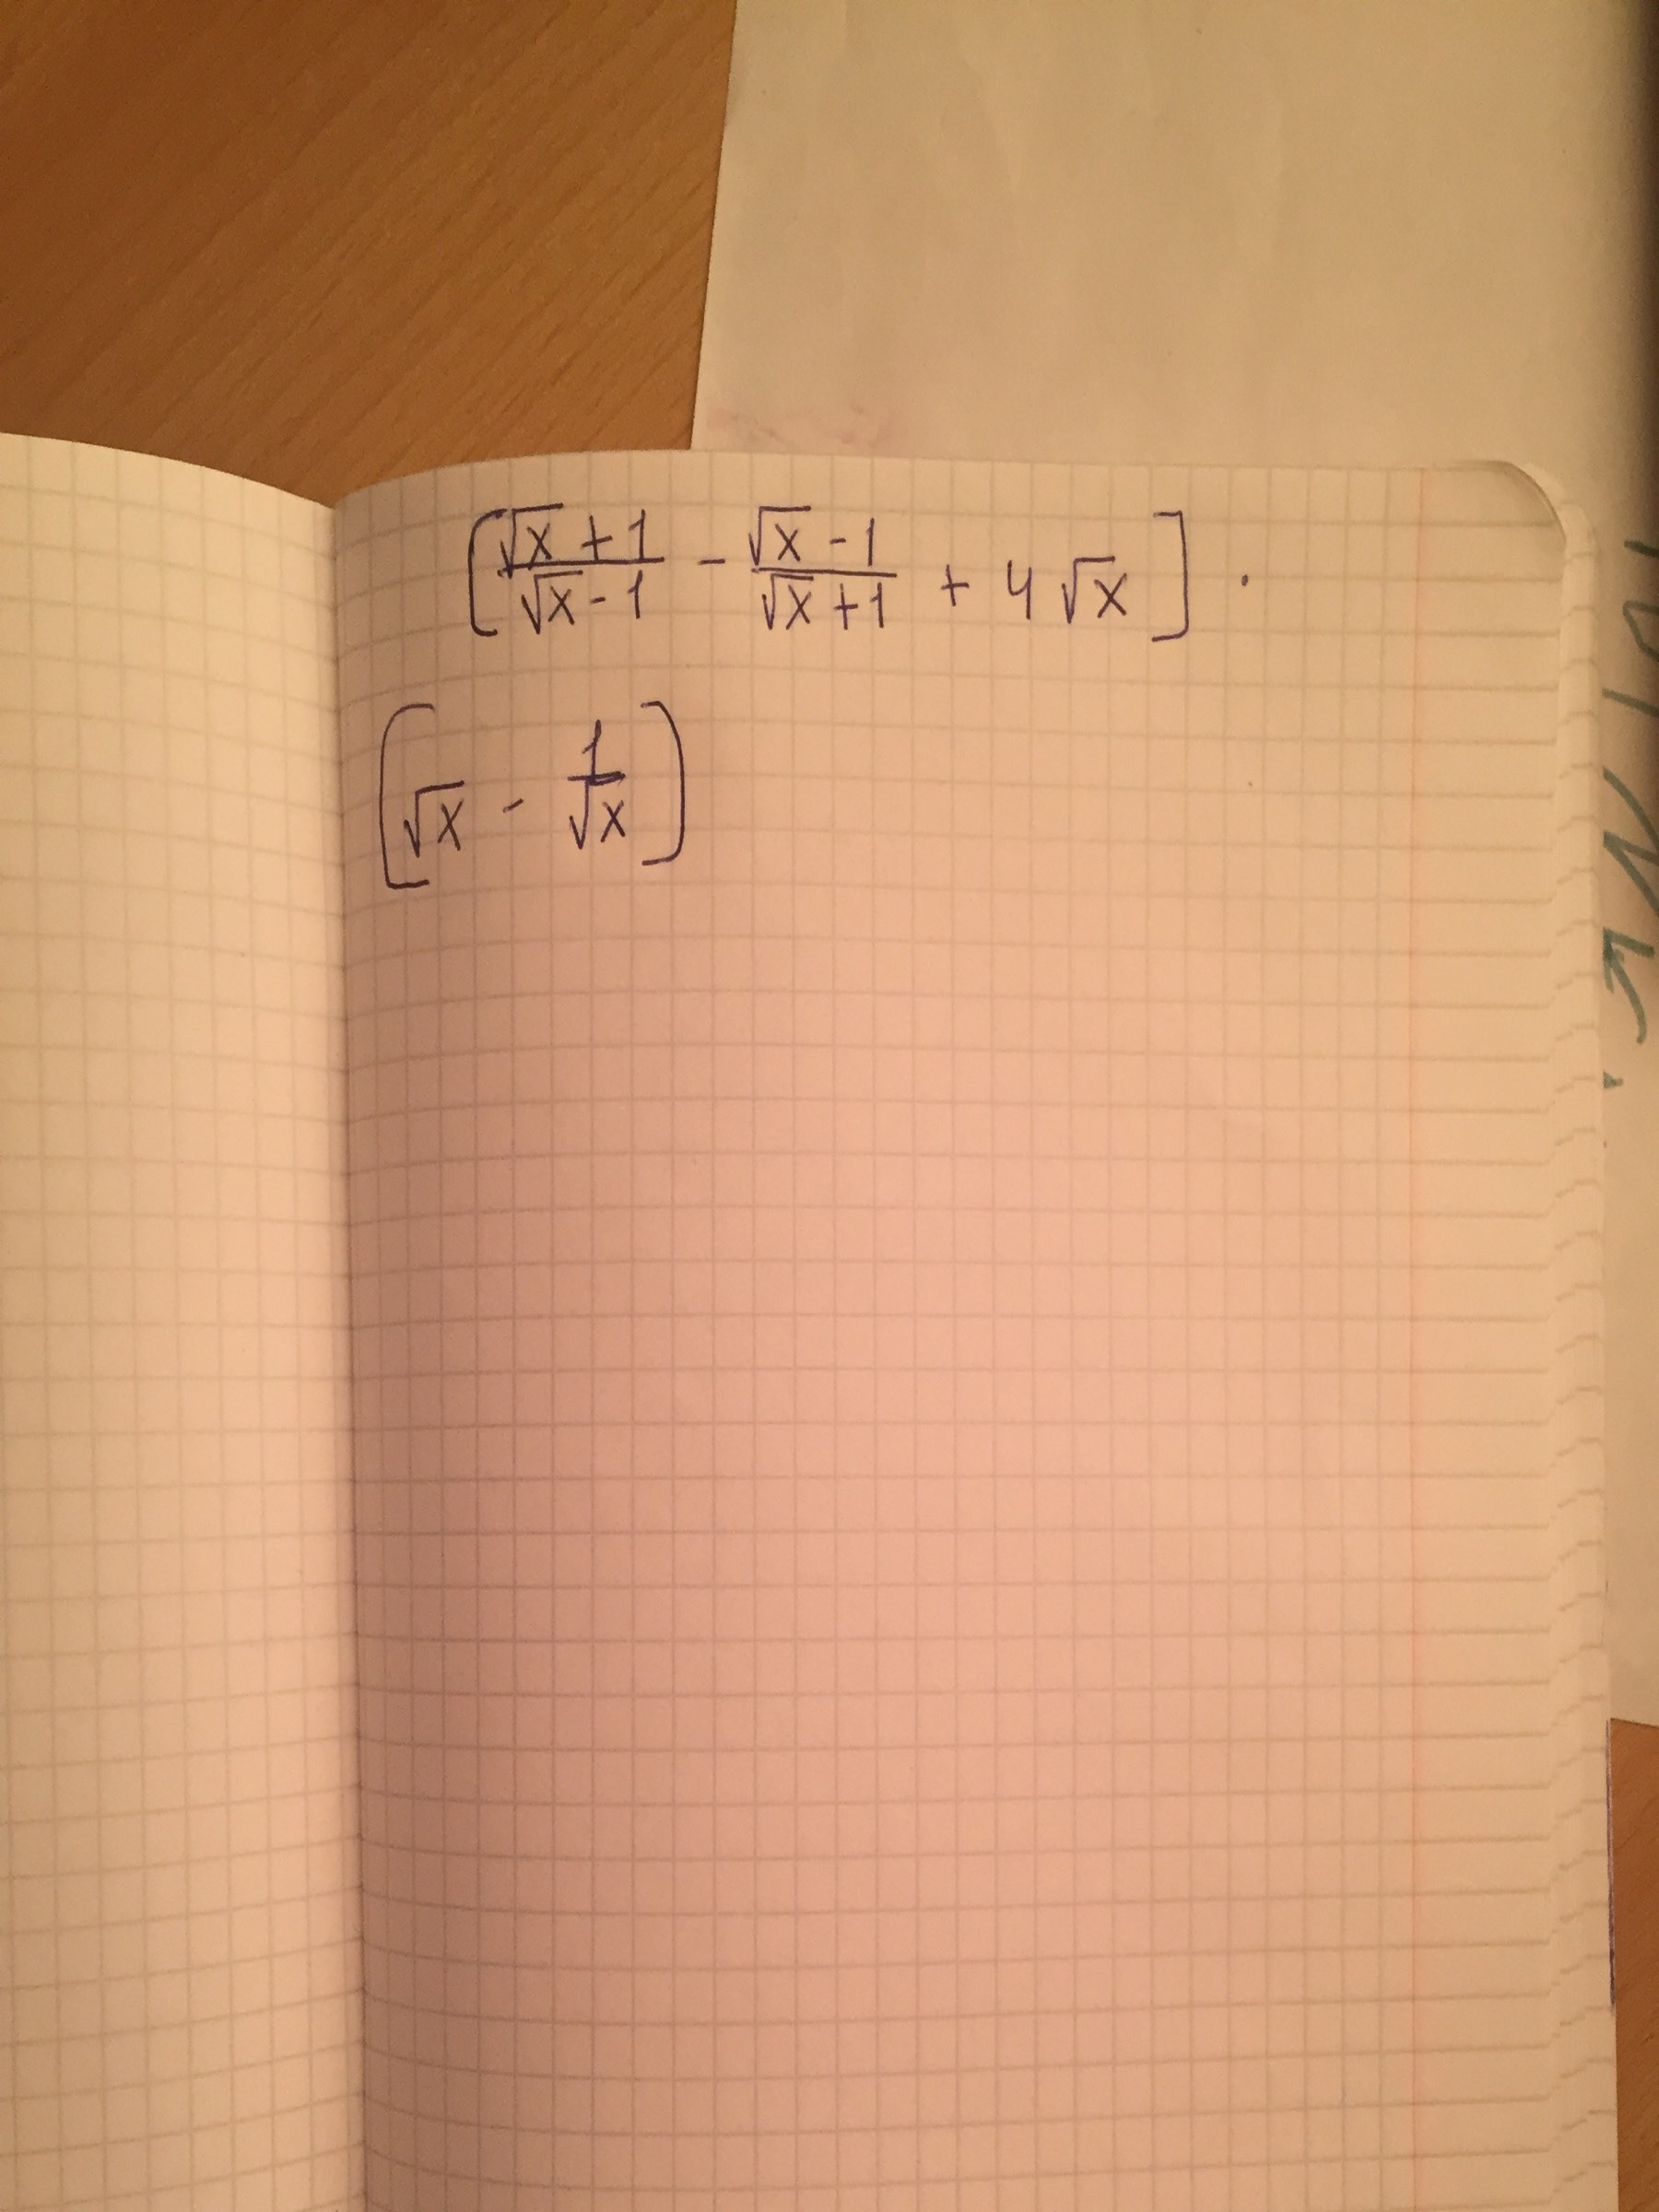 [(√x + 1)/(√x - 1) - (√x - 1)/(√x + 1) + 4√x] ·
[√x - 1/√x]